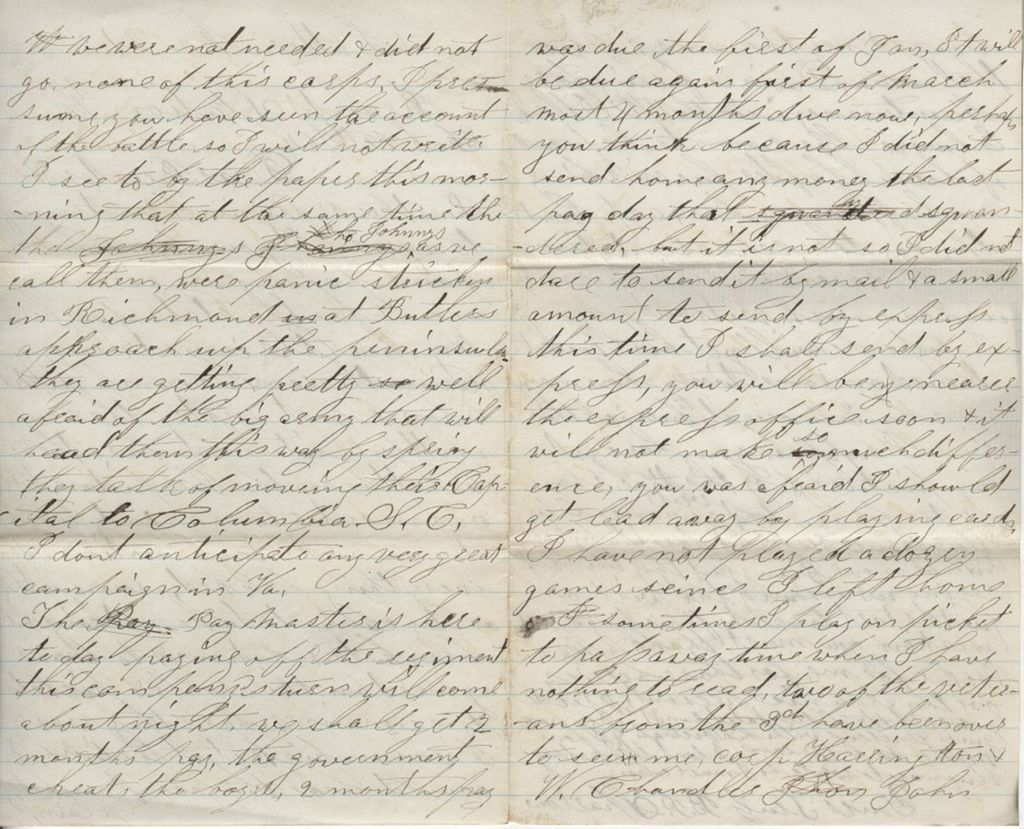 We were not needed & did not
go. none of this corps, I pre
sume you have seen the account
of the battle so I will not write.
I see to by the paper this mor-
-ning that at the same time the
the Johnnys as we
call them, were panic stricken
in Richmond us at Butlers
approach up the peninsula
they are getting pretty so well
afraid of the big army that will
head them this way by spring
they talk of moving their Cap-
ital to Columbia. S. C.
I dont anticipate any very great
campaign in Va.
The Pay Pay Master is here
to day paying off the regiment
this companys turn will come
about night. we shall get 2
months pay, the government
cheats the boys, 2 months pay
was due the first of Jan, It will
be due again first of March
most 4 months due now, perhaps
you think because I did not
send home any money the last
pay day that I squan
-dered, but it is not so I did not
dare to send it by mail & a small
amount to send by express
this time I shall send by ex-
press, you will be nearer
the express office soon & it
will not make so much differ-
ence, you was afraid I should
get lead away by playing cards,
I have not played a dozen
games seince I left home
I sometimes I play on picket
to pass away time when I have
nothing to read, two of the veter-
-ans from the 3d have been over
to see me, corp Harrington &
W. Chandler John